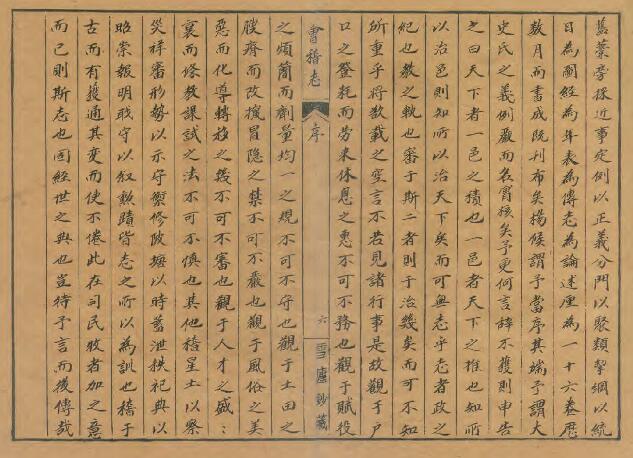 舊藳旁採近事定例以正義分門以聚類挈綱以統
目為圖經為年表為傳志為論述厘為一十六卷歷
数月而書成既刊布矣楊候謂予當序其端予謂大
史氏之義例嚴而名實核矣予更何言辞不獲則申告
之曰天下者一邑之積也一邑者天下之推也知所
以治邑則知所以治天下矣而可無志乎志者政之
紀也教之軌也審于斯二者則于治幾矣而可不知
所重乎將数载之空言不若見諸行事是故觀于户
口之登耗而劳来休息之惠不可不務也觀于賦役
會稽志
序
六
雪廬鈔藏
之煩簡而劑量均一之規不可不守也觀于土田之
膄瘠而改冒隐之禁不可不嚴也觀于風俗之美
惡而化導轉移之幾不可不審也觀于人才之盛
衰而條教課試之法不可不慎也其他稽星土以察
災祥審形勢以示守禦修陂塘以時蓄泄秩祀典以
昭崇報明职守以叙勲蹟皆志之所以為訓也稽于
古而有獲通其變而使不倦此在司民牧者加之意
而已則斯志也固經世之典也豈待予言而後傳哉